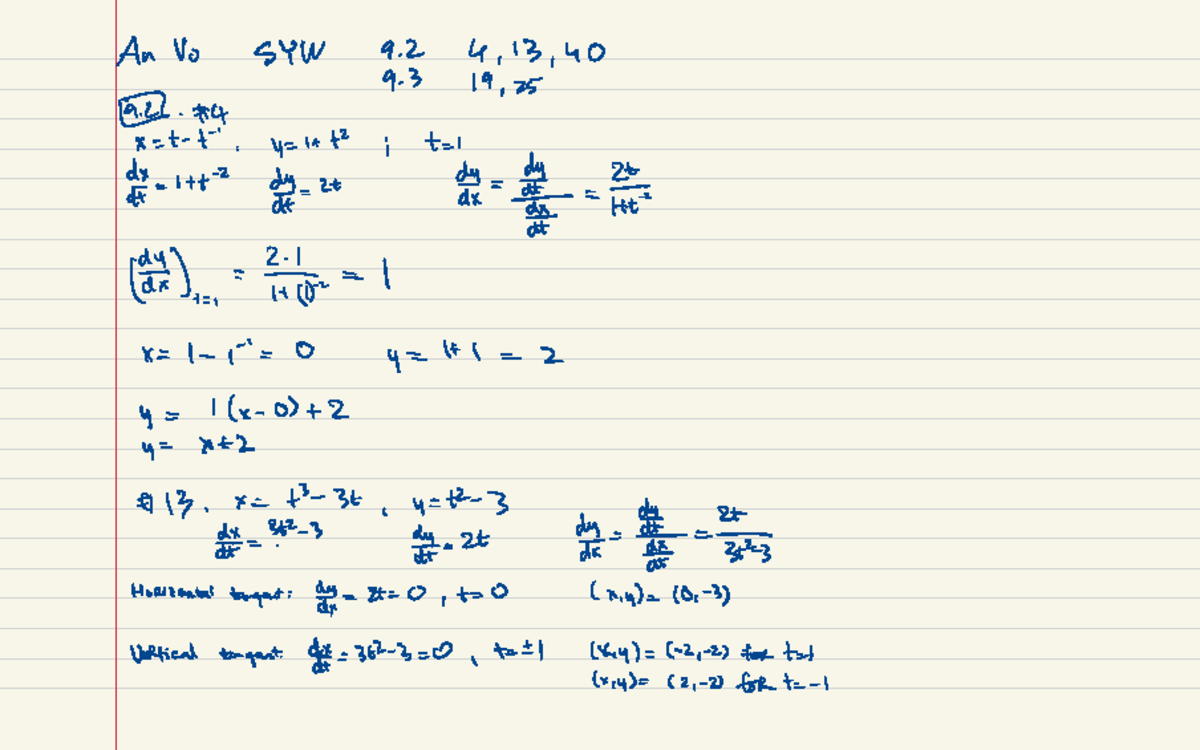 An Vo SYW 9.2 4, 13, 40
9.3 19, 25
9.2 . #4
x = t - t⁻¹, y = 1 + t² ; t = 1
dx/dt = 1 + t⁻² dy/dt = 2t dy/dx = (dy/dt)/(dx/dt) = 2t/(1+t⁻²)
(dy/dx)ₜ₌₁ = 2·1/(1+(1)⁻²) = 1
x = 1 - 1⁻¹ = 0 y = 1 + 1 = 2
y = 1(x - 0) + 2
y = x + 2
#13. x = t³ - 3t, y = t² - 3
dx/dt = 3t² - 3 dy/dt = 2t dy/dx = (dy/dt)/(dx/dt) = 2t/(3t²-3)
Horizontal tangent: dy/dx = 2t = 0, t = 0 (x,y) = (0,-3)
Vertical tangent: dx/dt = 3t² - 3 = 0, t = ±1 (x,y) = (-2,-2) for t=1
(x,y) = (2,-2) for t = -1